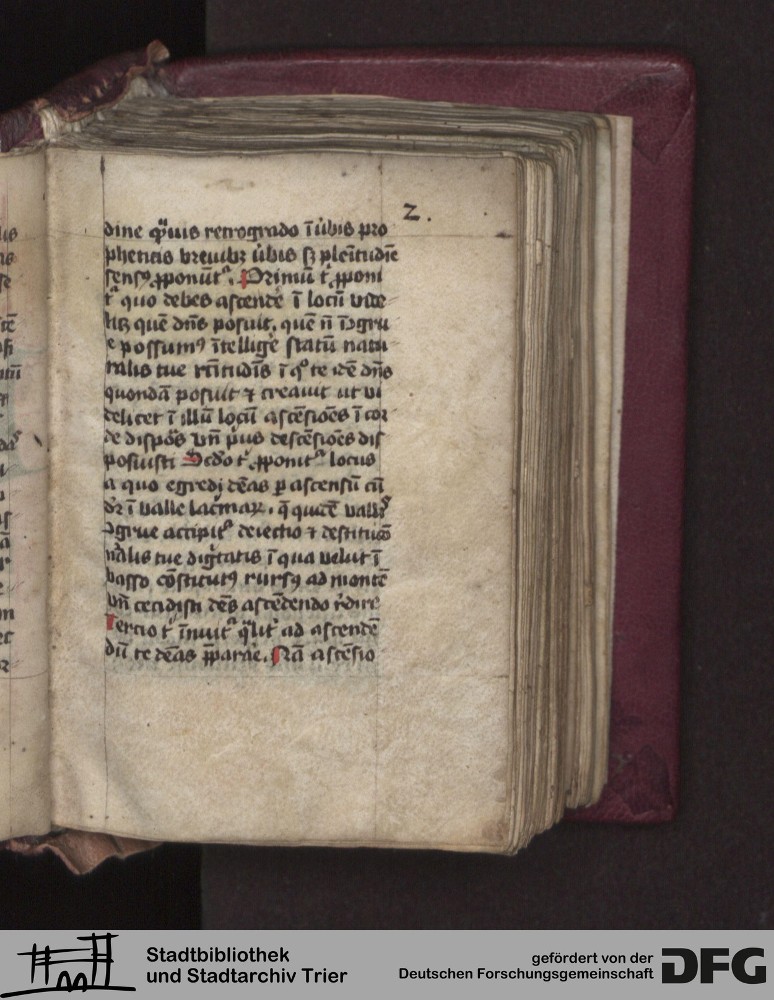 2.
dine qͣuis retrogrado ī ūbis pro
pheticis breuibꝫ ūbis sꝫ plēitudīe
sensꝰ ꝓponūtᷣ. Primū tᷣ ꝓponi
tᷣ quo debes ascendē ī locū vide
litꝫ quē dn̄s posuit, quē n̄ ꝯgru
e possumꝰ ītelligē statū natu
ralis tue ī qͦ te idē dn̄s
quondā posuit ⁊ creauit ut vi
delicet ī illū locū ascēsiōes ī cor
de dispōs vn̄ pͥus descēsiōes dis
posuisti Scd̄o tᷣ ꝓponitᷣ locus
a quo egredi dēas ꝑ ascensū cū
dr̄ ī valle lac̄maꝝ, ī q̄ quidē vallᷣ
ꝯgrue accipitᷣ deiectio ⁊ destitucō
nālis tue dignͥtatis ī qua velut ī
basso cōstitutꝰ rursꝰ ad montē
vn̄ cecidisti dēs ascēdendo rͤdire
Tercio tᷣ īnuitᷣ qͣlitᷣ ad ascendē
dū te dēas p̄parāe. Nā ascēsio
Stadtbibliothek
und Stadtarchiv Trier
gefördert von der
Deutschen Forschungsgemeinschaft
DFG